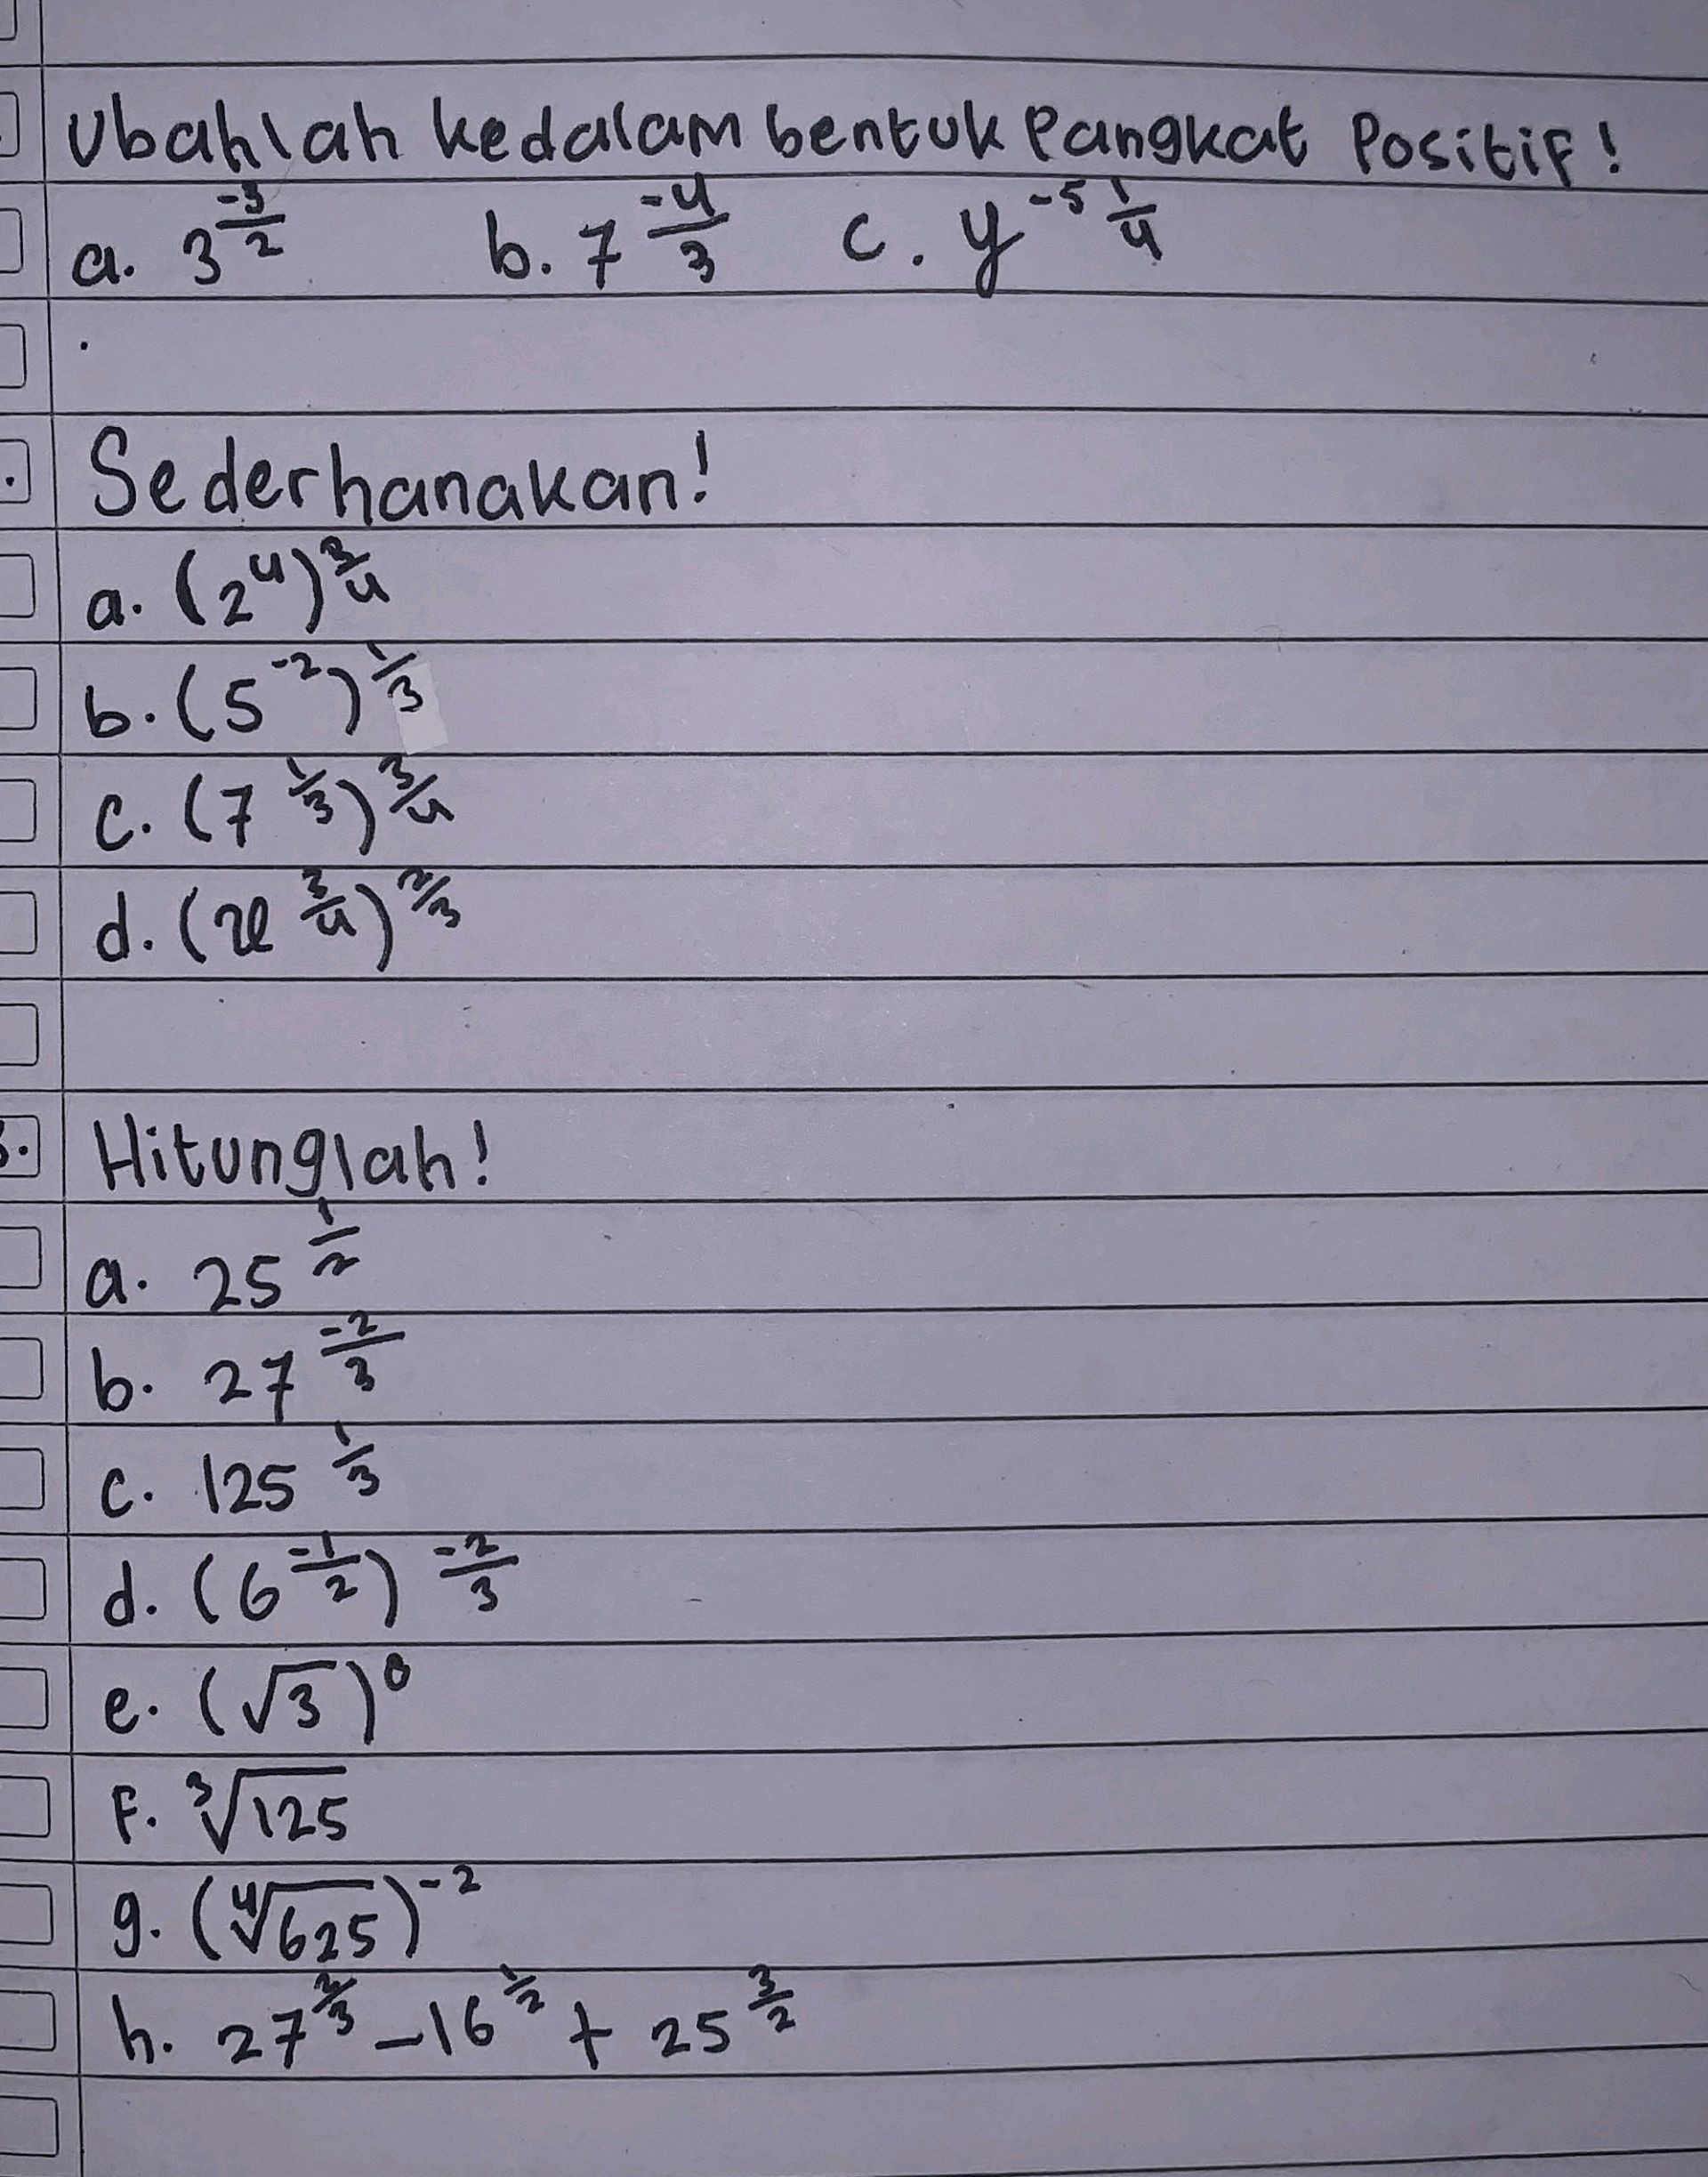 Ubahlah kedalam bentuk Pangkat Positif!
a. 3^(-3/2) b. 7^(-4/3) c. y^(-5 1/4)
Sederhanakan!
a. (2^4)^(3/4)
b. (5^-2)^(1/3)
c. (7^(1/3))^(3/4)
d. (x^(3/4))^(2/3)
Hitunglah!
a. 25^(1/2)
b. 27^(-2/3)
c. 125^(1/3)
d. (6^(-1/2))^(-2/3)
e. (√3)^0
F. ³√125
g. (⁴√625)^-2
h. 27^(2/3) - 16^(1/2) + 25^(3/2)